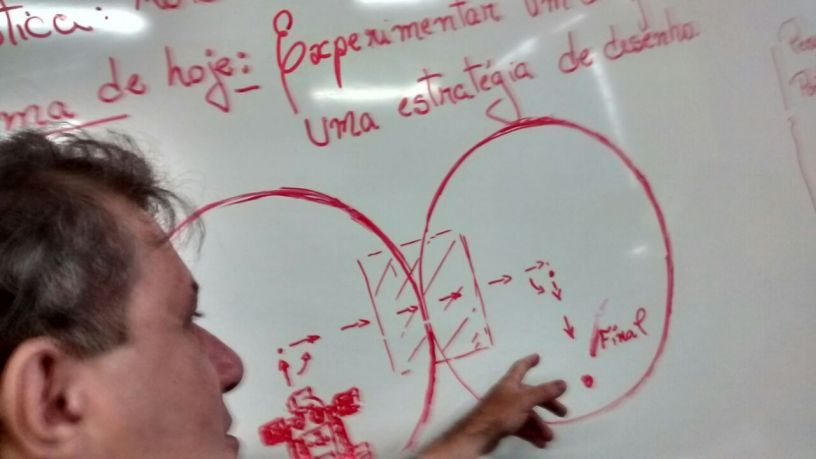 tica:
ma de hoje: Experimentar um
uma estratégia de desenho
Final